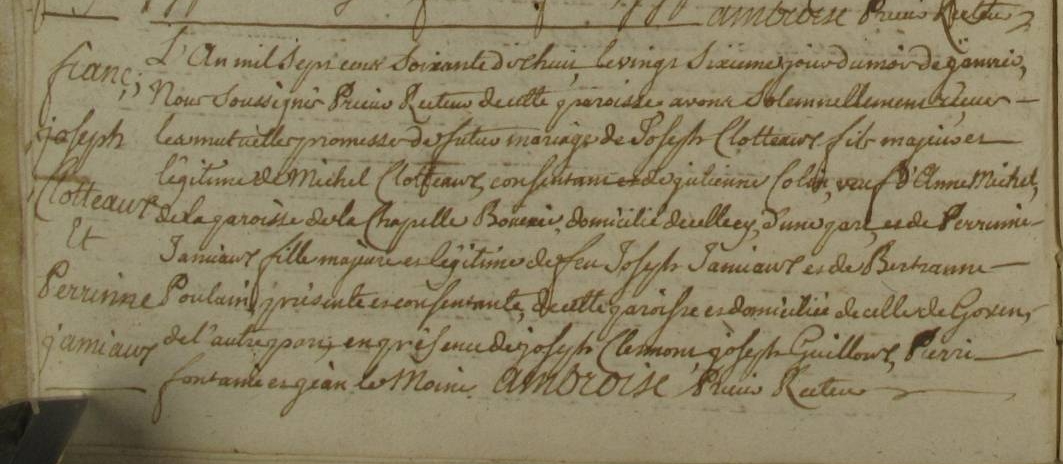 ambroise Prieur Recteur
fianç;;
joseph
Clotteaux
Et
Perrinne
jamiaux
L'An mil sept cent soixante dix huit, le vingt sixieme jour du mois de janvier,
Nous soussigné Prieur Recteur de cette paroisse avons solemnellement receu
les mutuelles promesses de futur mariage de Joseph Clotteaux fils majeur et
légitime de Michel Clotteaux, consentant et de julienne Colin, veuf d'Anne Michel,
de la paroisse de la Chapelle Bouexic, domicilié de celle cy, d'une part, et de Perrinne
Jamiaux fille majeure et légitime de feu Joseph Jamiaux et de Bertranne
Poulain, présente et consentante, de cette paroisse et domiciliée de celle de Goven,
de l'autre part, en présence de joseph Clermont joseph Guilloux, Pierre
fontaine et jean le Moine ambroise, Prieur Recteur